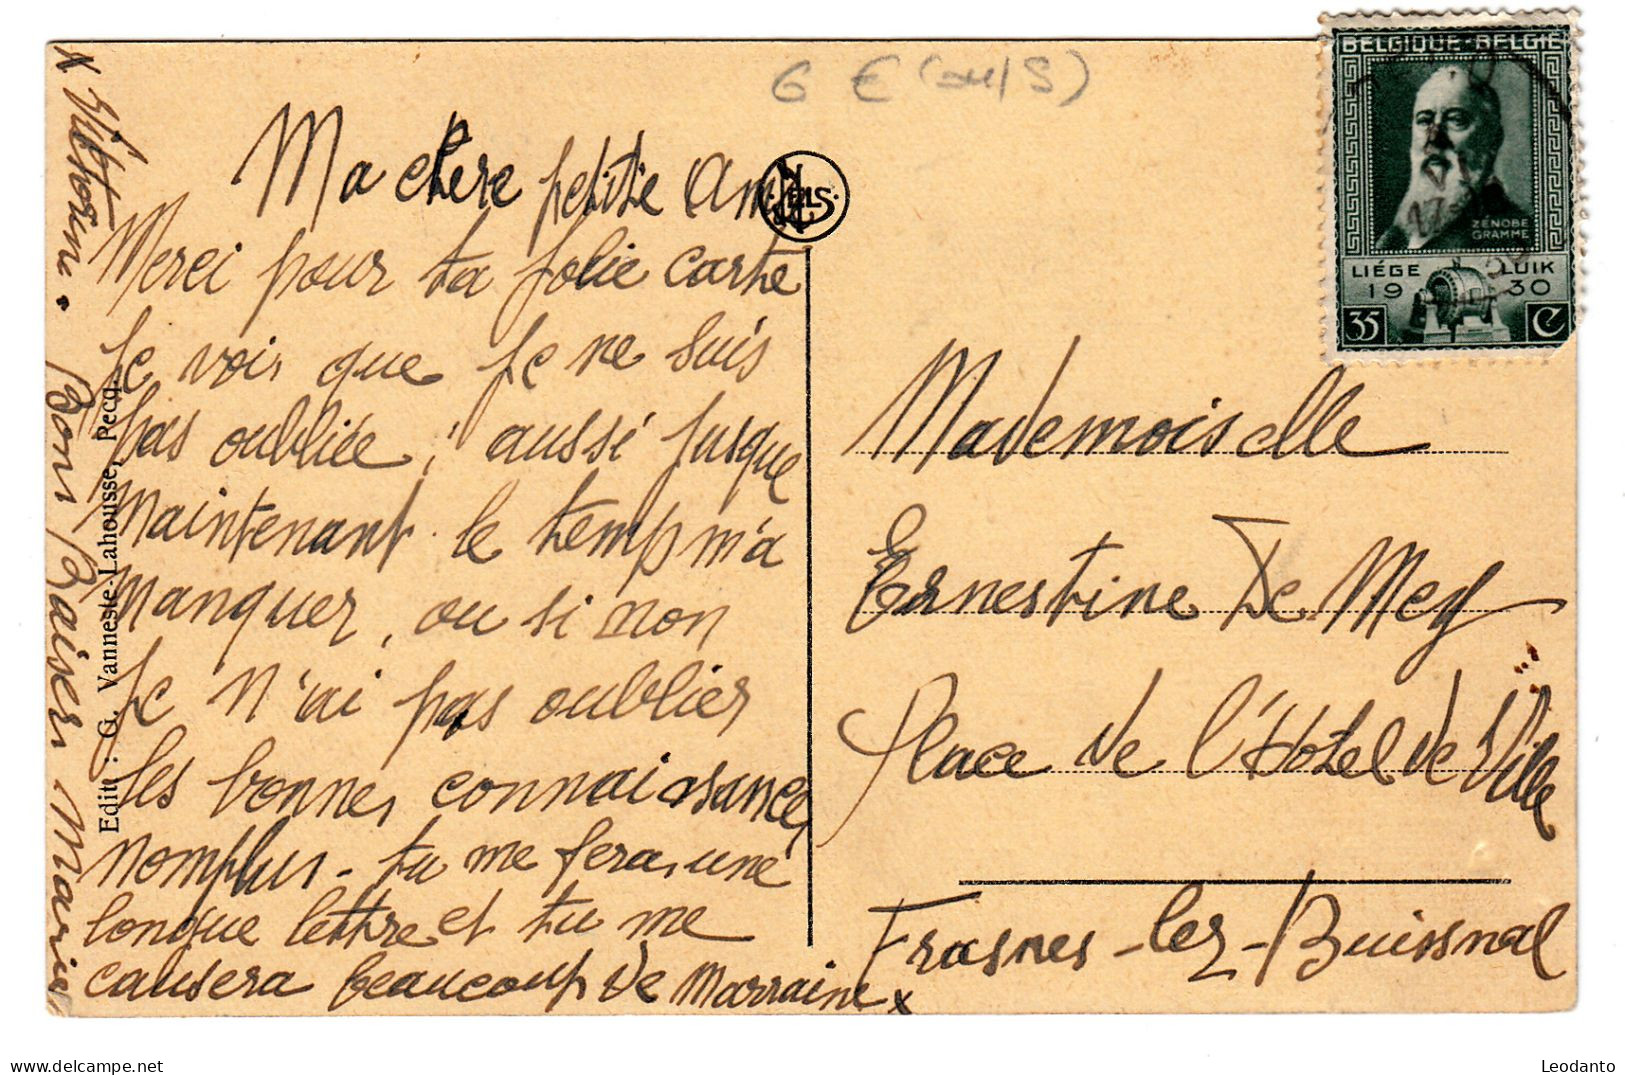 6 € (ou/S)
Ma chère petite Amie
Merci pour ta jolie carte
je vois que je ne suis
pas oubliée ; aussi jusque
maintenant le temp m'a
manquer, ou si non
je n'ai pas oublier
les bonnes connaissances
nomplus - tu me feras une
longue lettre et tu me
causera beaucoup de Marraine x
x Victorine. Bon Baiser Maria
NELS
Edit : G. Vanneste-Lahousse, Pecq.
BELGIQUE-BELGIË
ZÉNOBE
GRAMME
LIÉGE LUIK
1930
35 C
Mademoiselle
Ernestine De Mey
Place de l'Hotel de Ville
Frasnes-lez-Buissnal
Leodanto